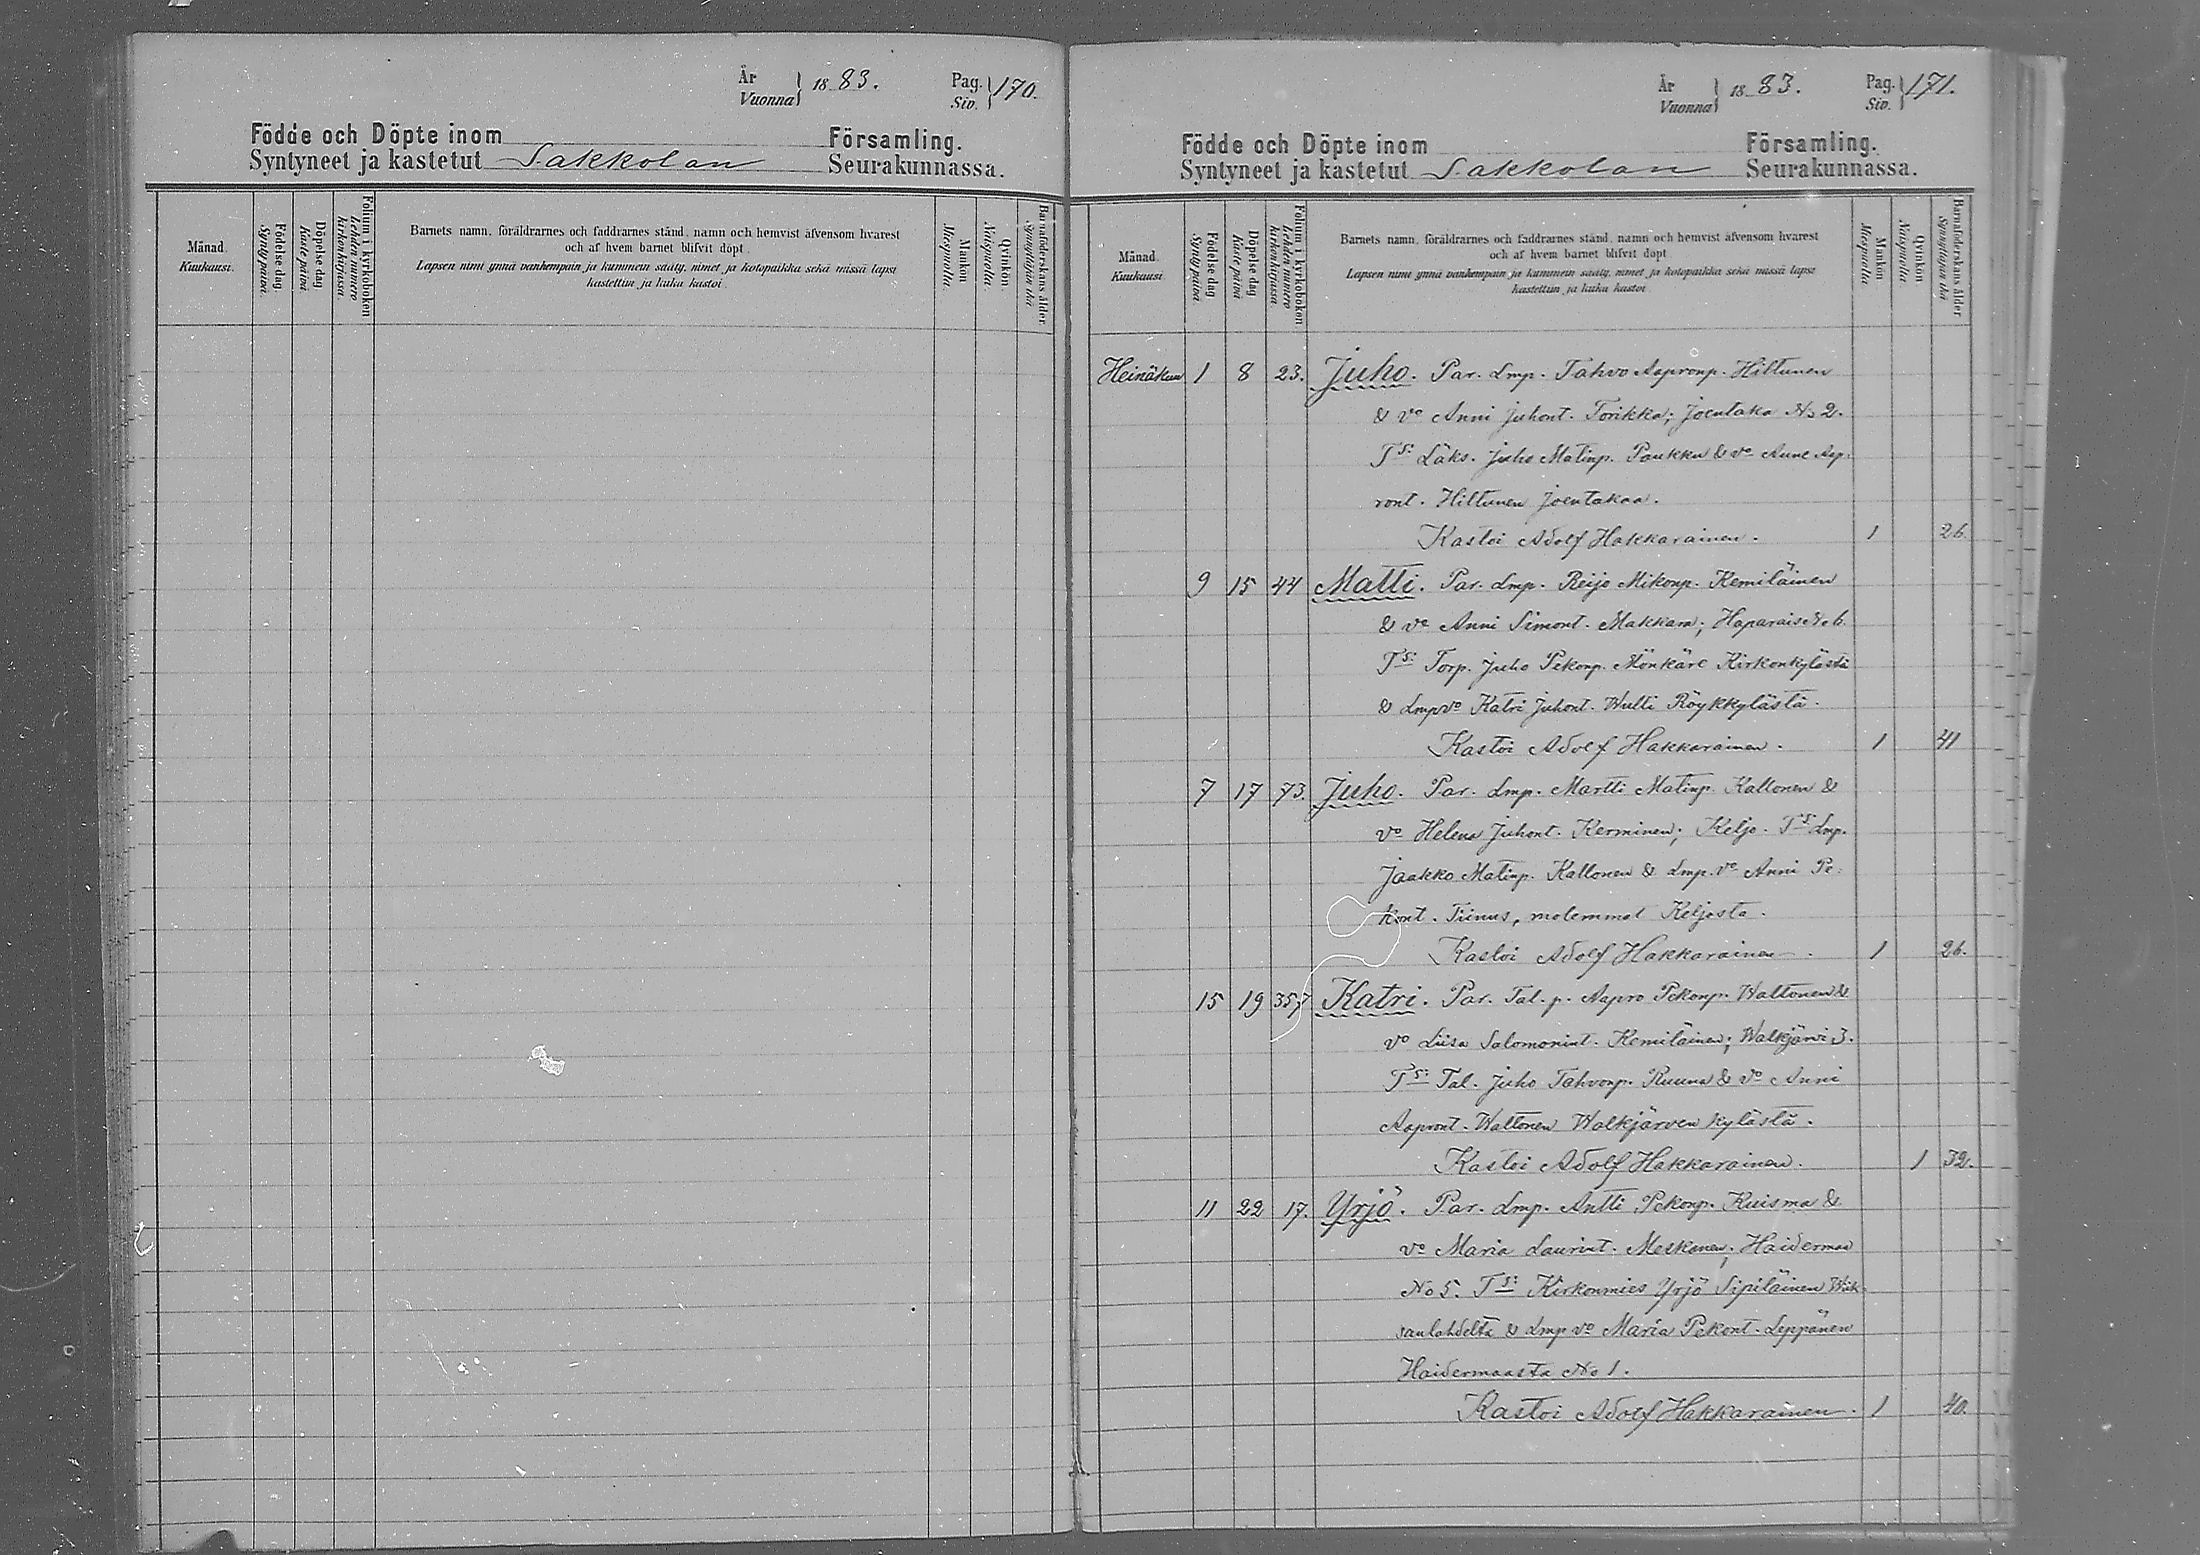 År
Vuonna } 1883.
Pag.
Siv. } 170.
Födde och Döpte inom Församling.
Syntyneet ja kastetut Sakkolan Seurakunnassa.
Månad.
Kuukausi.
Födelse dag.
Synty päivä.
Döpelse dag
Kaste päivä.
Folium i kyrkoboken
Lehden numero kirkonkirjassa.
Barnets namn, föräldrarnes och faddrarnes stånd, namn och hemvist äfvensom hvarest
och af hvem barnet blifvit döpt.
Lapsen nimi ynnä vanhempain ja kummein sääty, nimet ja kotopaikka sekä missä lapsi
kastettiin ja kuka kastoi.
Mankön
Miespuolia.
Qvinkön
Naispuolia.
Barnaföderskans ålder.
Synnyttäjän ikä
År
Vuonna } 1883.
Pag.
Siv. } 171.
Födde och Döpte inom Församling.
Syntyneet ja kastetut Sakkolan Seurakunnassa.
Månad.
Kuukausi
Födelse dag
Synty päivä.
Döpelse dag
Kaste päivä
Folium i kyrkoboken
Lehden numero kirkonkirjassa
Barnets namn, föräldrarnes och faddrarnes stånd, namn och hemvist äfvensom hvarest
och af hvem barnet blifvit döpt
Lapsen nimi ynnä vanhempain ja kummein sääty, nimet ja kotopaikka sekä missä lapsi
kastettiin ja kuka kastoi
Mankön
Miespuolia
Qvinkön
Naispuolia
Barnaföderskans ålder
Synnyttäjän ikä
Heinäkuu 1 8 23. Juho. Par. Lmp. Tahvo Aapronp. Hiltunen
& vo Anni Juhont. Torikka; Joentaka No 2.
Ts: Läks. Juho Matinp. Paukku & vo Anne Aap-
ront. Hiltunen Joentakaa.
Kastoi Adolf Hakkarainen. 1 26.
9 15 44 Matti. Par. Lmp. Reijo Mikonp. Kemiläinen
& vo Anni Simont. Makkara; Haparais No 6.
Ts: Torp. Juho Pekonp. Mönkäre Kirkonkylästä
& Lmpvo Katri Juhont. Wulli Röykkylästä.
Kastoi Adolf Hakkarainen. 1 41
7 17 73. Juho. Par. Lmp. Martti Matinp. Kallonen &
vo Helena Juhont. Kerminen; Keljo. Ts: Lmp.
Jaakko Matinp. Kallonen & Lmp. vo Anni Pe-
kont. Tiinus, molemmat Keljosta.
Kastoi Adolf Hakkarainen. 1 26.
15 19 357 Katri. Par. Tal. p. Aapro Pekonp. Waltonen &
vo Liisa Salomonint. Kemiläinen; Walkjärvi 3.
Ts: Tal. Juho Tahvonp. Ruuna & vo Anni
Aapront. Waltonen Walkjärven kylästä.
Kastoi Adolf Hakkarainen. 1 32.
11 22 17. Yrjö. Par. Lmp. Antti Pekonp. Kuisma &
vo Maria Laurint. Meskanen; Haidermaa
No 5. Ts: Kirkonmies Yrjö Sipiläinen Wiik-
sanlahdelta & Lmp vo Maria Pekont. Leppänen
Haidermaasta No 1.
Kastoi Adolf Hakkarainen. 1 40.